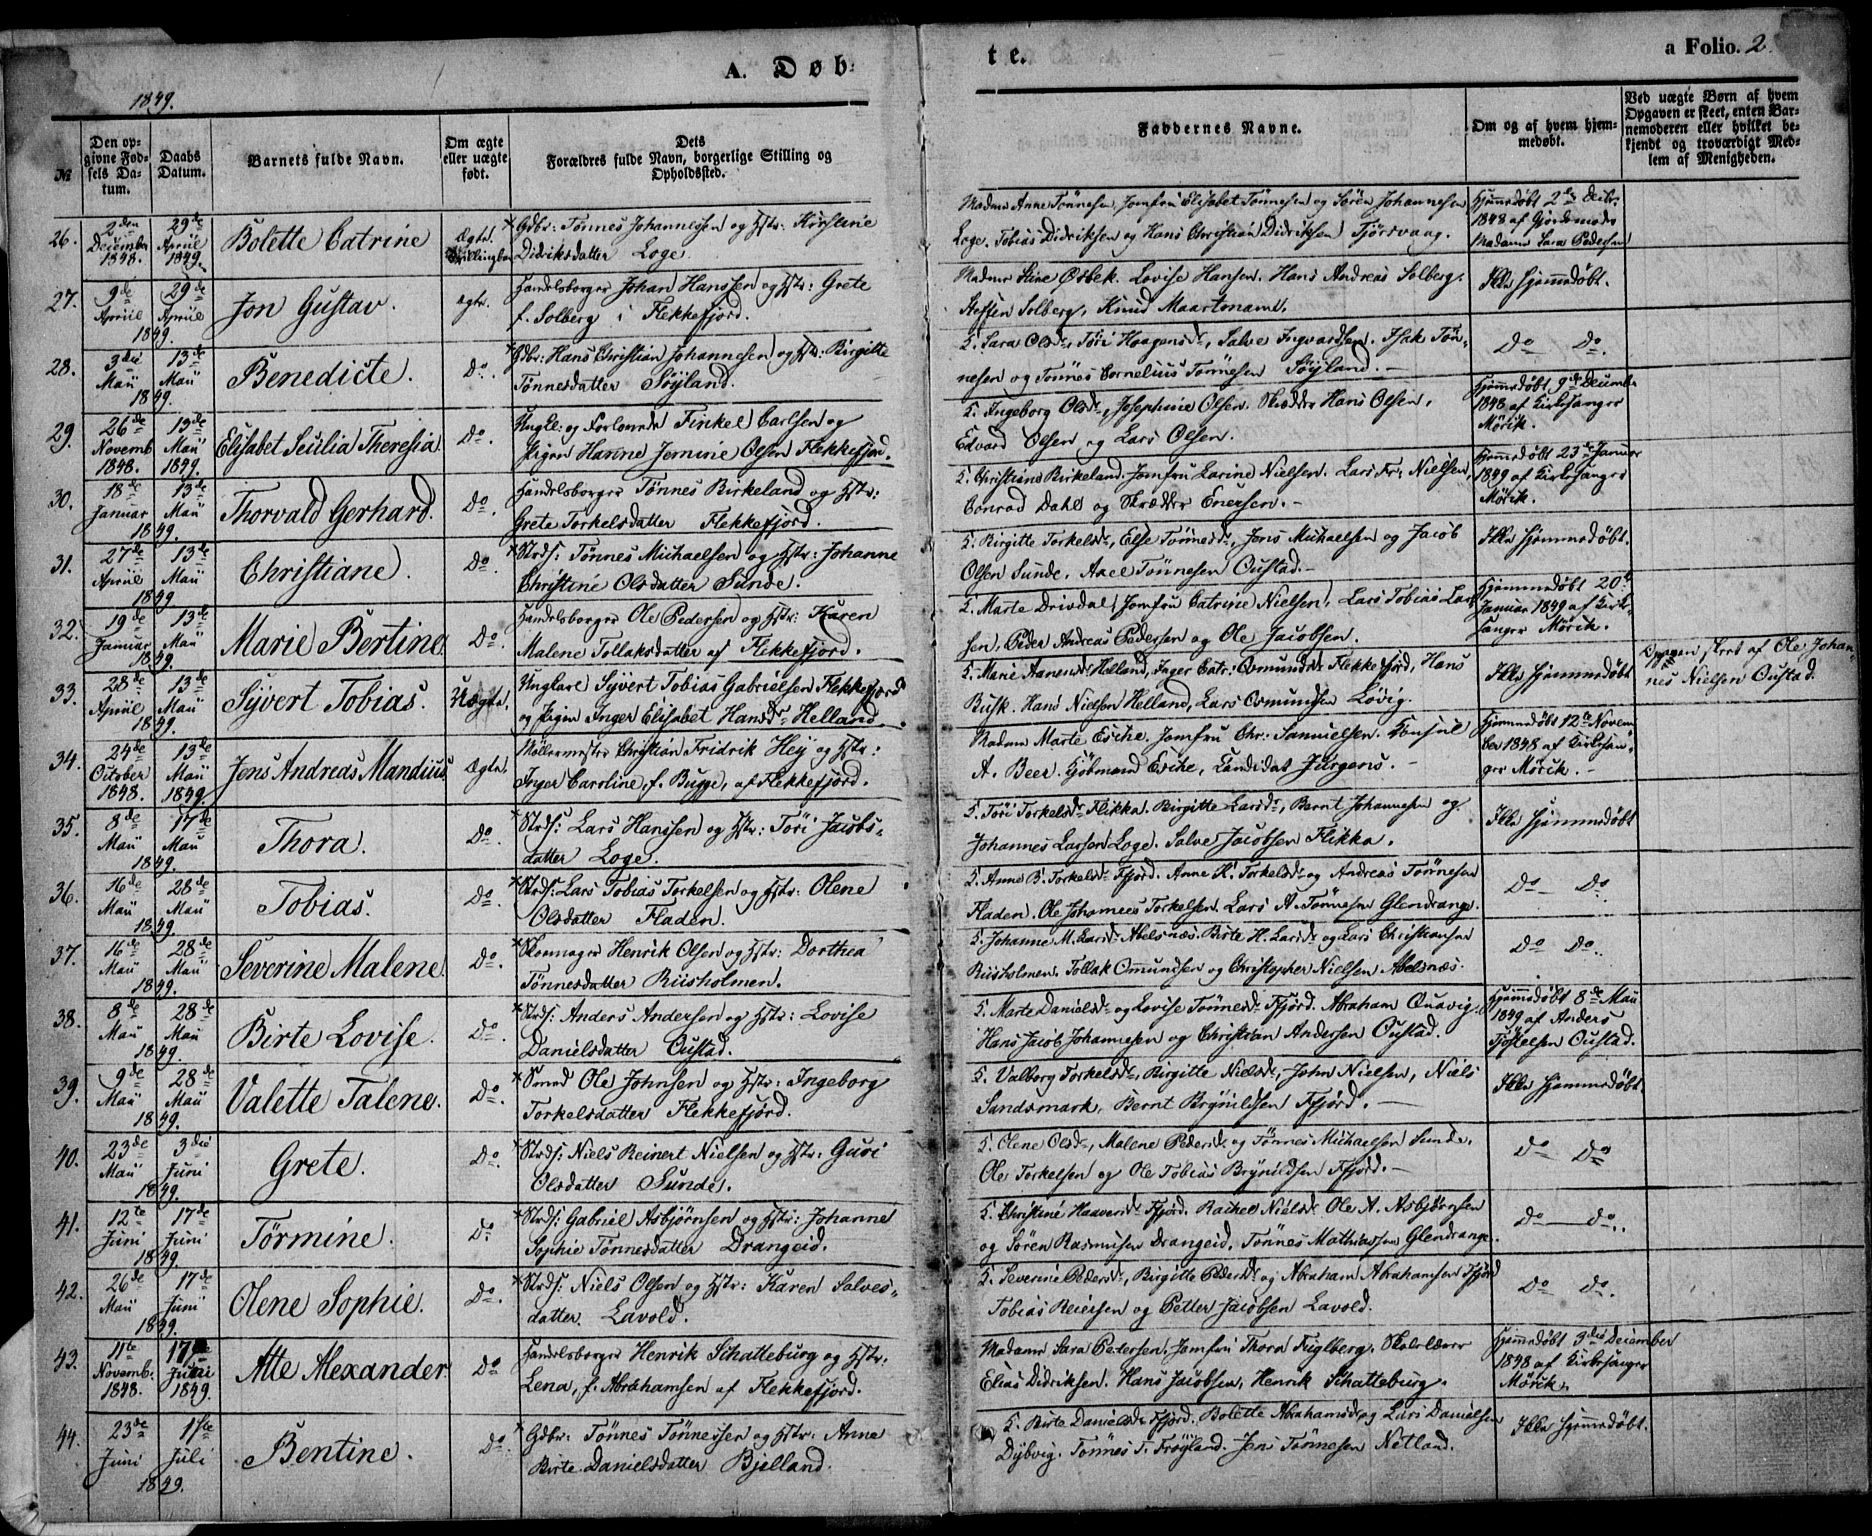 A. Døb-
te.
a Folio. 2.
1849.
№
Den op-
givne Fød-
sels Da-
tum.
Daabs
Datum.
Barnets fulde Navn.
Om ægte
eller uægte
født.
Dets
Forældres fulde Navn, borgerlige Stilling og
Opholdssted.
Faddernes Navne.
Om og af hvem hjem-
medøbt.
Ved uægte Børn af hvem
Opgaven er skeet, enten Bar-
nemoderen eller hvilket be-
kjendt og troværdigt Med-
lem af Menigheden.
26.
2den December 1848.
29de Aprill 1849.
Bolette Catrine
Ægte.
* Gdbr: Tønnes Johannesen og Hstr: Kirstine
Didriksdatter Loge.
Madme Anne Tønnesen, Jomfru Elisabet Tønnesen og Søren Johannesen
Loge. Tobias Didriksen og Hans Christian Didriksen Fjørsvaag.
Hjemmedøbt 2de Decbr.
1848 af Gjordemoder
Madame Sara Pedersen
27.
9de Aprill 1849.
29de Aprill
Jon Gustav.
ægte.
Handelsborger Johan Hanssen og Hstr: Grete
f. Solberg i Flekkefjord.
Madme Stine Ørbek. Lovise Hansen. Hans Andreas Solberg.
Steffen Solberg, Knud Maartmann.
Ikke Hjemmedøbt.
28.
3die Maii 1849.
13de Maii
Benedicte.
Do.
* Gdbr: Hans Christian Johannesen og Hstr: Birgitte
Tønnesdatter Søyland.
K. Sara Olsdr, Tøri Haagensdr, Salve Ingvardsen. Isak Tøn-
nesen og Tønnes Cornelius Tønnesen Søyland.
Do Do.
29.
26de Novemb 1848.
13de Maii 1849.
Elisabet Secilia Theresia.
Do.
Ungk: og Forlovede Finkel Carlsen og
Pigen Hanne Jemine Olsen Flekkefjord.
K. Ingeborg Olsdr, Josephine Olsen. Skrædder Hans Olsen,
Edvard Olsen og Lars Olsen.
Hjemmedøbt 9de December
1848 af Kirkesanger
Mörik.
30.
18de Januar 1849.
13de Maii
Thorvald Gerhard.
Do.
Handelsborger Tønnes Birkeland og Hstr:
Grete Torkelsdatter Flekkefjord.
K. Christine Birkeland. Jomfru Larine Nielsen. Lars Fr. Nielsen,
Conrad Dahl og Skrædder Enersen.
Hjemmedøbt 23de Januar
1849 af Kirkesanger
Mörik.
31.
27de Aprill 1849
13de Maii
Christiane.
Do.
* Strds: Tønnes Michaelsen og Hstr: Johanne
Christine Olsdatter Sunde.
K. Birgitte Torkelsdr, Else Tønnesdr, Jens Michaelsen og Jacob
Olsen Sunde. Axel Tønnesen Oustad.
Ikke Hjemmedøbt.
32.
19de Januar 1849.
13de Maii
Marie Bertine
Do.
Handelsborger Ole Pedersen og Hstr: Karen
Malene Tollaksdatter af Flekkefjord.
K. Marte Drivdal, Jomfru Catrine Nielsen, Lars Tobias Lar-
sen, Peder Andreas Pedersen og Ole Jacobsen.
Hjemmedøbt 20de
Januar 1849 af Kirke-
sanger Mörik.
33.
28de Aprill 1849.
13de Maii
Syvert Tobias.
Uægte.
Ungkarl Syvert Tobias Gabrielsen Flekkefjord
og Pigen Inger Elisabet Hansdr Helland.
K. Marie Aanensdr Helland, Inger Catr. Osmundsdr Flekkefjord, Hans
Busk. Hans Nielsen Helland, Lars Osmundsen Løvig.
Ikke Hjemmedøbt
Opgaven skeet af Ole Johan-
nes Nielsen Oustad.
34.
24de October 1848.
13de Maii 1849.
Jens Andreas Mandius
Ægte.
Møllermester Christian Fridrik Hey og Hstr:
Inger Caroline, f. Bugge, af Flekkefjord.
Madam Marte Esche. Jomfru Chr: Samuelsen. Konsul
A. Beer. Kjøbmand Esche, Candidat Jürgens.
Hjemmedøbt 12te Novem-
ber 1848 af Kirkesan-
ger Mörik.
35.
8de Maii 1849.
17de Maii
Thora.
Do.
* Strds: Lars Hanssen og Hstr: Tøri Jacobs-
datter Loge.
K. Tøri Torkelsdr Flikka. Birgitte Larsdr, Bernt Johannesen og
Johannes Larsen Loge. Salve Jacobsen Flikka.
Ikke Hjemmedøbt
36.
16de Maii 1849.
28de Maii
Tobias.
Do.
* Strds: Lars Tobias Torkelsen og Hstr: Olene
Olsdatter Fladen.
K. Anne B. Torkelsdr Fjord. Anne K. Torkelsdr og Andreas Tønnesen
Fladen. Ole Johannes Torkelsen. Lars A. Tønnesen Glendrange.
Do Do
37.
16de Maii 1849.
28de Maii
Severine Malene
Do.
* Skomager Henrik Olsen og Hstr: Dorthea
Tønnesdatter Riisholmen.
K. Johanne M. Larsdr Abelsnæs. Birte H. Larsdr og Lars Christiansen
Riisholmen. Tollak Omundsen og Christopher Nielsen Abelsnæs.
Do Do.
38.
8de Maii 1849.
28de Maii
Birte Lovise.
Do.
* Strds: Anders Andersen og Hstr: Lovise
Danielsdatter Oustad.
K. Marte Danielsdr og Lovise Tønnesdr Fjord. Abraham Quavig.
Hans Jacob Johannesen og Christian Andersen Oustad.
Hjemmedøbt 8de Maii
1849 af Anders
Tjøstelsen Oustad.
39.
9de Maii 1849.
28de Maii
Valette Talene.
Do.
* Smed Ole Johnsen og Hstr: Ingeborg
Torkelsdatter Flekkefjord.
K. Valborg Torkelsdr, Birgitte Nielsdr, John Nielsen, Niels
Sandsmark, Bernt Brynildsen Fjord.
Ikke Hjemmedøbt.
40.
23de Maii 1849.
3die Juni
Grete.
Do.
* Strds: Niels Reinert Nielsen og Hstr: Guri
Olsdatter Sunde.
K. Olene Olsdr, Malene Pedersdr og Tønnes Michaelsen Sunde.
Ole Torkelsen og Ole Tobias Brynildsen Fjord.
Do Do
41.
12te Juni 1849.
17de Juni
Tørmine.
Do.
* Strds: Gabriel Asbjørnsen og Hstr: Johanne
Sophie Tønnesdatter Drangeid.
K. Christine Haavorsdr Fjord. Rachel Nielsdr Ole A. Asbjørnsen
og Søren Rasmusen Drangeid. Tønnes Mathiassen Glendrange.
Do Do.
42.
26de Maii 1849.
17de Juni
Olene Sophie.
Do.
* Strds: Niels Olsen og Hstr: Karen Salves-
datter Lavold.
K. Severine Pedersdr, Birgitte Pedersdr og Abraham Abrahamsen Fjord
Tobias Reiersen og Petter Jacobsen Lavold.
Do Do.
43.
11te Novemb. 1848.
17de Juni 1849.
Atte Alexander
Do
Handelsborger Henrik Schatteburg og Hstr:
Lena, f. Abrahamsen af Flekkefjord.
Madame Sara Petersen. Jomfru Thora Fuglberg. Skolelærer
Elias Didriksen. Hans Jacobsen, Henrik Schatteburg.
Hjemmedøbt 3die December
1848 af Kirkesanger
Mörik.
44.
23de Juni 1849.
1ste Juli
Bentine.
Do.
* Gdbr: Tønnes Tønnessen og Hstr: Anne
Birte Danielsdatter Bjelland.
K. Birte Danielsdr Fjord. Bolette Abrahamsdr og Lars Danielsen
Dybvig. Tønnes T. Frøyland. Jens Tønnesen Netland.
Ikke Hjemmedøbt.